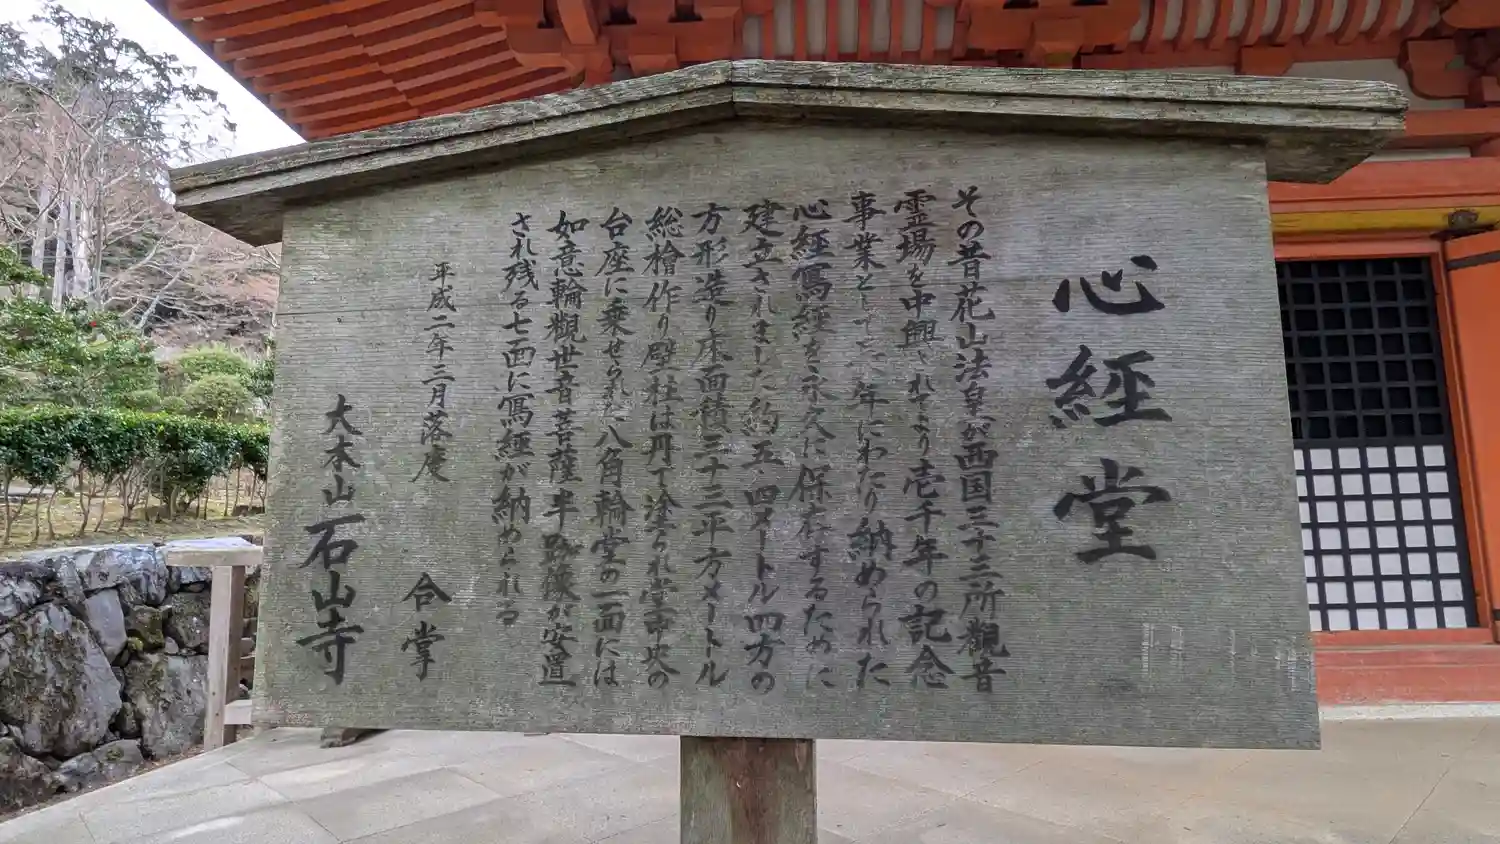 心経堂
その昔花山法皇が西国三十三所観音
霊場を中興されてより壱千年の記念
事業として六ヶ年にわたり納められた
心経寫経を永久に保存するために
建立されました約五・四メートル四方の
方形造り床面積三十三平方メートル
総檜作り壁柱は丹で塗られ堂中央の
台座に乗せられた八角輪堂の一面には
如意輪觀世音菩薩半跏像が安置
され残る七面に寫経が納められる
平成二年三月落慶
合掌
大本山石山寺